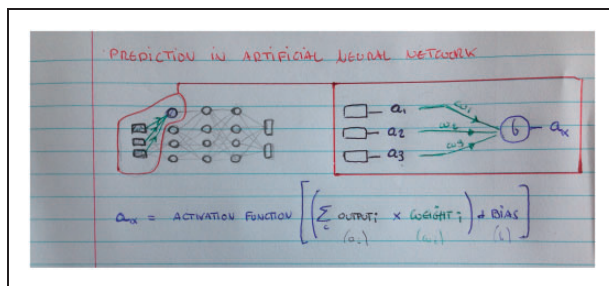 PREDICTION IN ARTIFICIAL NEURAL NETWORK
a₁ ω₁
a₂ ω₂ b aₓ
a₃ ω₃
aₓ = ACTIVATION FUNCTION [(∑ᵢ OUTPUTᵢ × WEIGHTᵢ) + BIAS]
(aᵢ) (ωᵢ) (b)